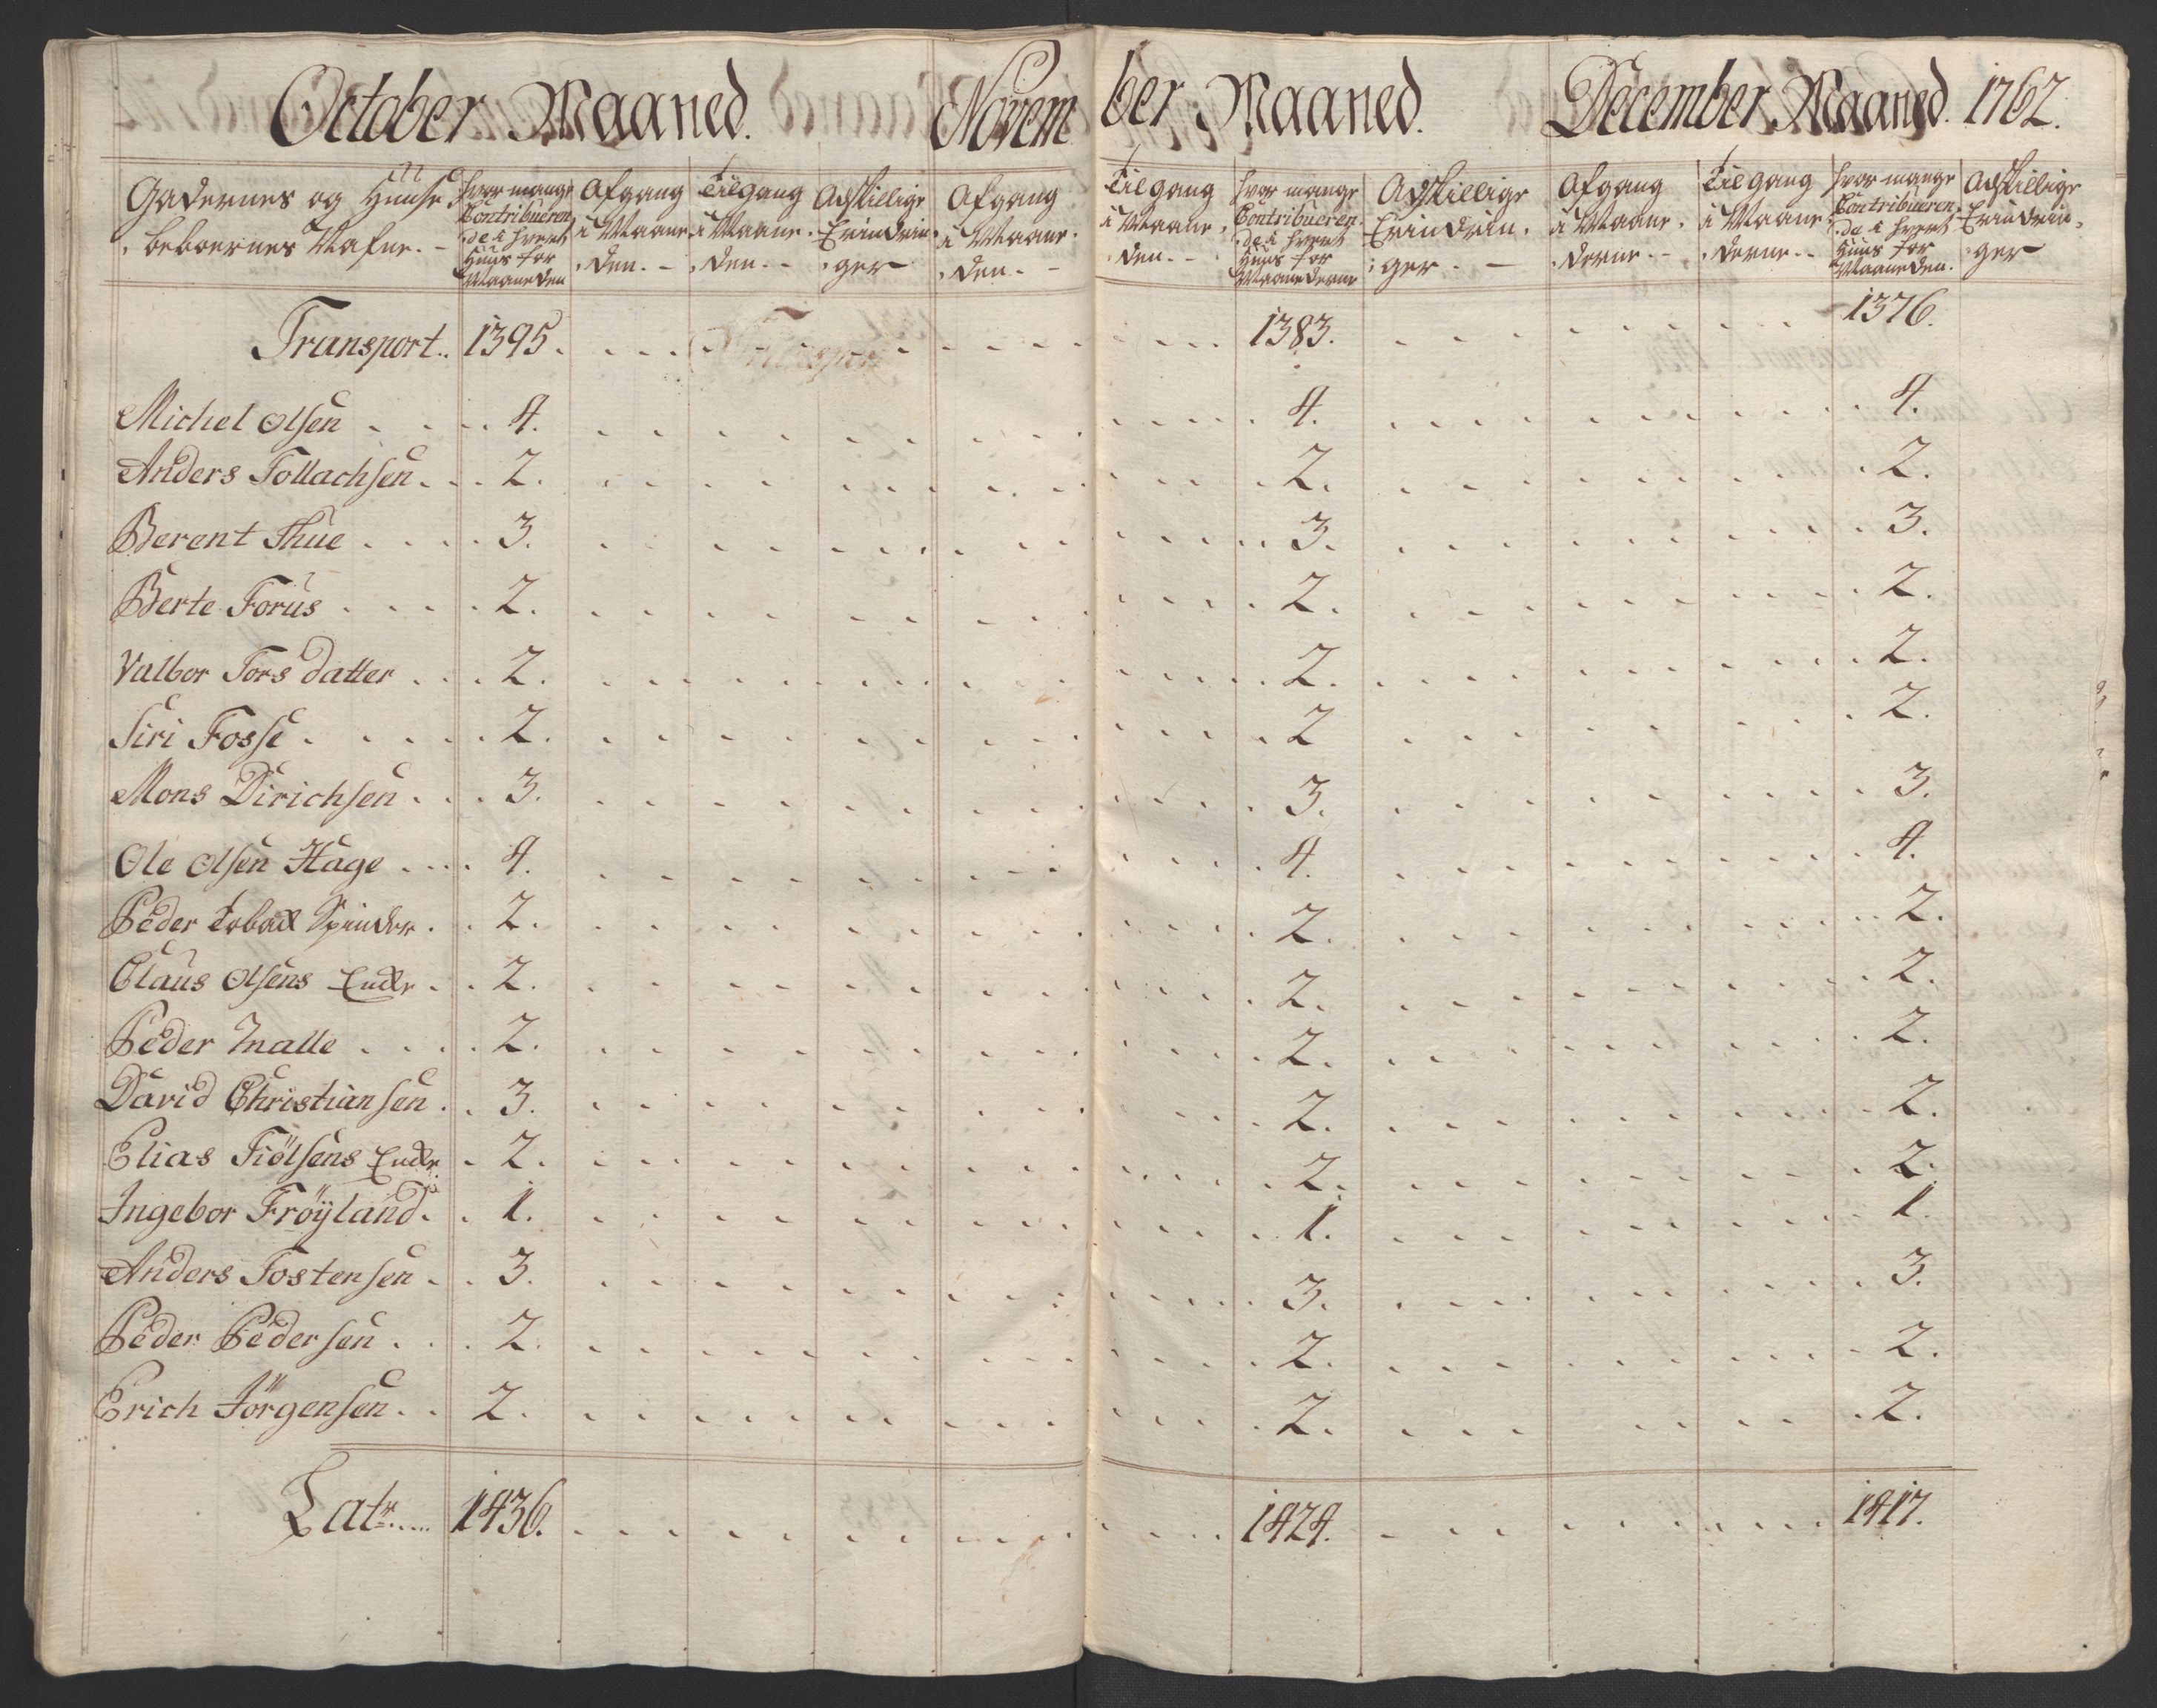 October Maaned. November Maaned. December Maaned. 1762.
Gadernes og Huuse beboernes Nafne. | hvor mange Contribueren de i hvert Huus for Maaneden | Afgang i Maane den. | Tilgang i Maane den. | Adskillige Erindrin ger | Afgang i Maane den. | Tilgang i Maane den. | hvor mange Contribueren de i hvert Huus for Maanederne | Adskillige Erindrin ger. | Afgang i Maane derne. | Tilgang i Maane derne. | hvor mange Contribueren de i hvert Huus for Maaneden. | Adskillige Erindrin ger
Transport.. 1395. 1383. 1376.
Michel Olsen 4. 4. 4.
Anders Tollachsen 2. 2. 2.
Berent Thue 3. 3. 3.
Berte Forus 2. 2. 2.
Valbor Tors datter 2. 2. 2.
Siri Fosse 2. 2 2.
Mons Dirichsen 3. 3. 3.
Ole Olsen Hage 4. 4. 4.
Peder Tobak Spinder 2. 2. 2.
Claus Olsens Encke 2. 2. 2.
Peder Malle 2. 2. 2.
David Christiansen 3. 2. 2.
Elias Fiölsens Encke 2. 2. 2.
Ingebor Fröyland 1. 1. 1.
Anders Tostensen 3. 3. 3.
Peder Pedersen 2. 2. 2.
Erich Jörgensen 2. 2. 2.
Latr. 1436. 1424. 1417.